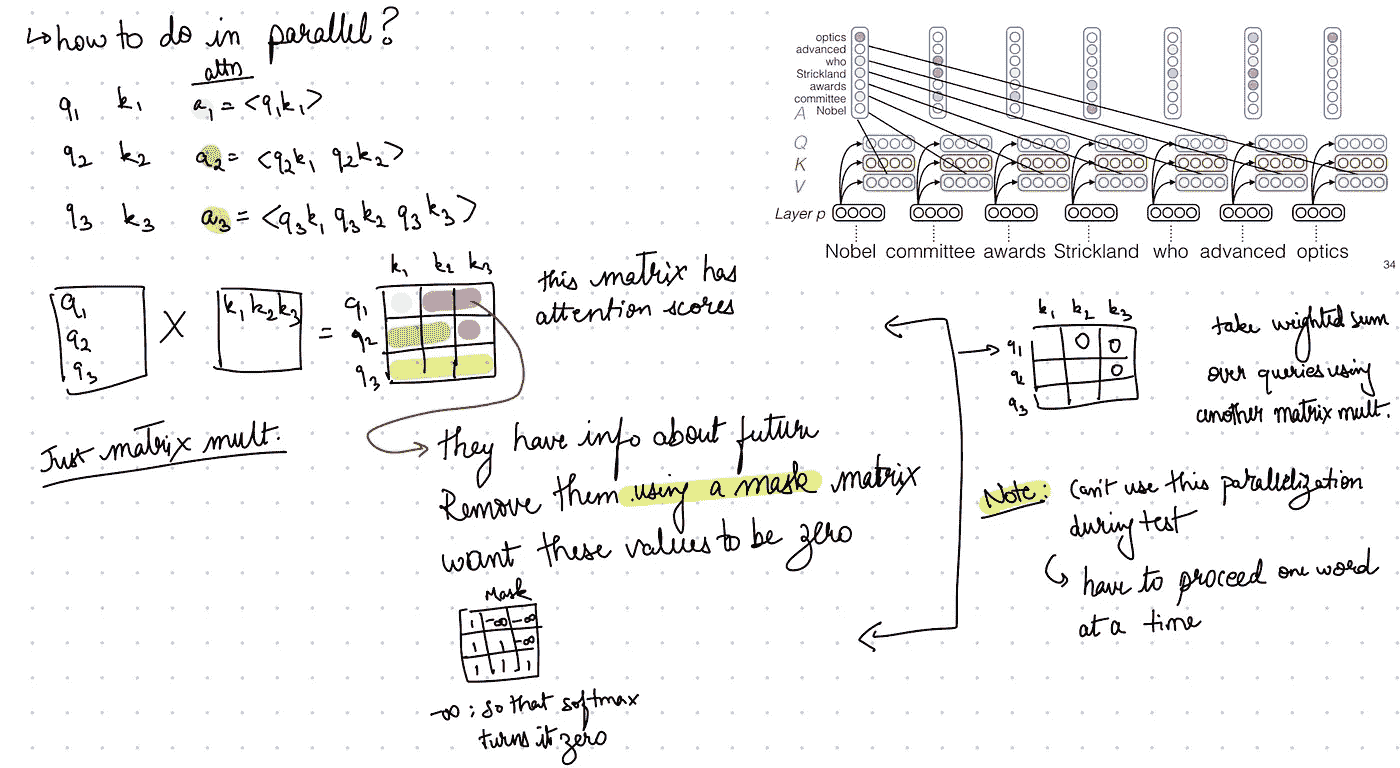 ↳ how to do in parallel?
attn
q1 k1 a1 = <q1k1>
q2 k2 a2 = <q2k1 q2k2>
q3 k3 a3 = <q3k1 q3k2 q3k3>
q1
q2
q3
X
k1 k2 k3
=
k1 k2 k3
q1
q2
q3
this matrix has
attention scores
Just matrix mult.
they have info about future
Remove them using a mask matrix
want these values to be zero
Mask
1 -∞ -∞
1 1 -∞
1 1 1
-∞ : so that softmax
turns it zero
optics
advanced
who
Strickland
awards
committee
Nobel
A
Q
K
V
Layer p
Nobel committee awards Strickland who advanced optics
34
k1 k2 k3
q1 0 0
q2 0
q3
take weighted sum
over queries using
another matrix mult.
Note: Can't use this parallelization
during test
↳ have to proceed one word
at a time